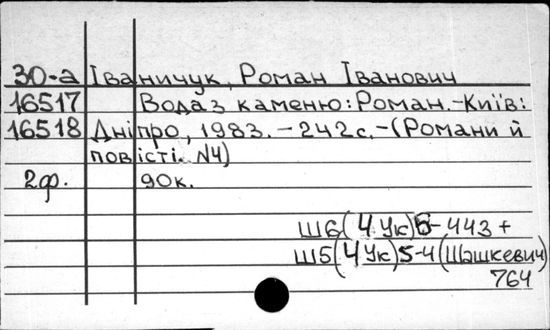 30-а Іваничук, Роман Іванович
16517 Вода з каменю: Роман.-Київ:
16518 Дніпро, 1983. - 242 с. - (Романи й
повісті. №4)
2ф. 90к.
Ш6(4Ук)6-443 +
Ш5(4Ук)5-4(Шашкевич)
764